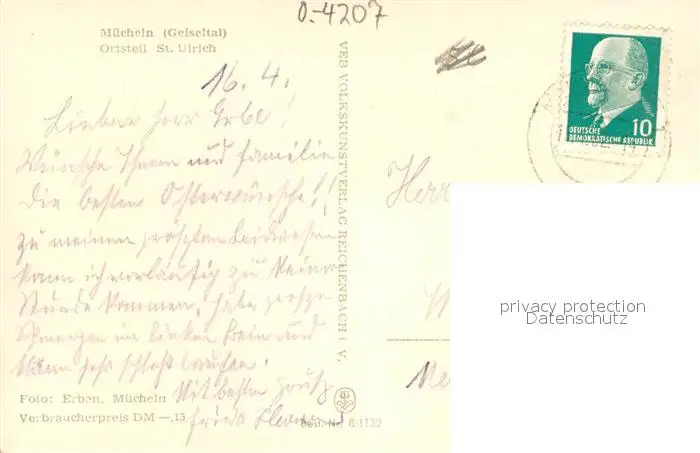 O-4207
Mücheln (Geiseltal)
Ortsteil St. Ulrich
16. 4.
Lieber Herr Erbe!
Wünsche Ihnen und Familie
die besten Osterwünsche!!
zu meinem größten Leidwesen
kann ich vorläufig zu keiner
Stunde kommen, habe große
Schmerzen im linken Bein und
kann sehr schlecht laufen.
Mit besten Gruß
Frieda
Foto: Erben, Mücheln
Verbraucherpreis DM —,15
Best. Nr. 8/1132
VEB VOLKSKUNSTVERLAG REICHENBACH i. V.
10
DEUTSCHE
DEMOKRATISCHE REPUBLIK
Herr
privacy protection
Datenschutz